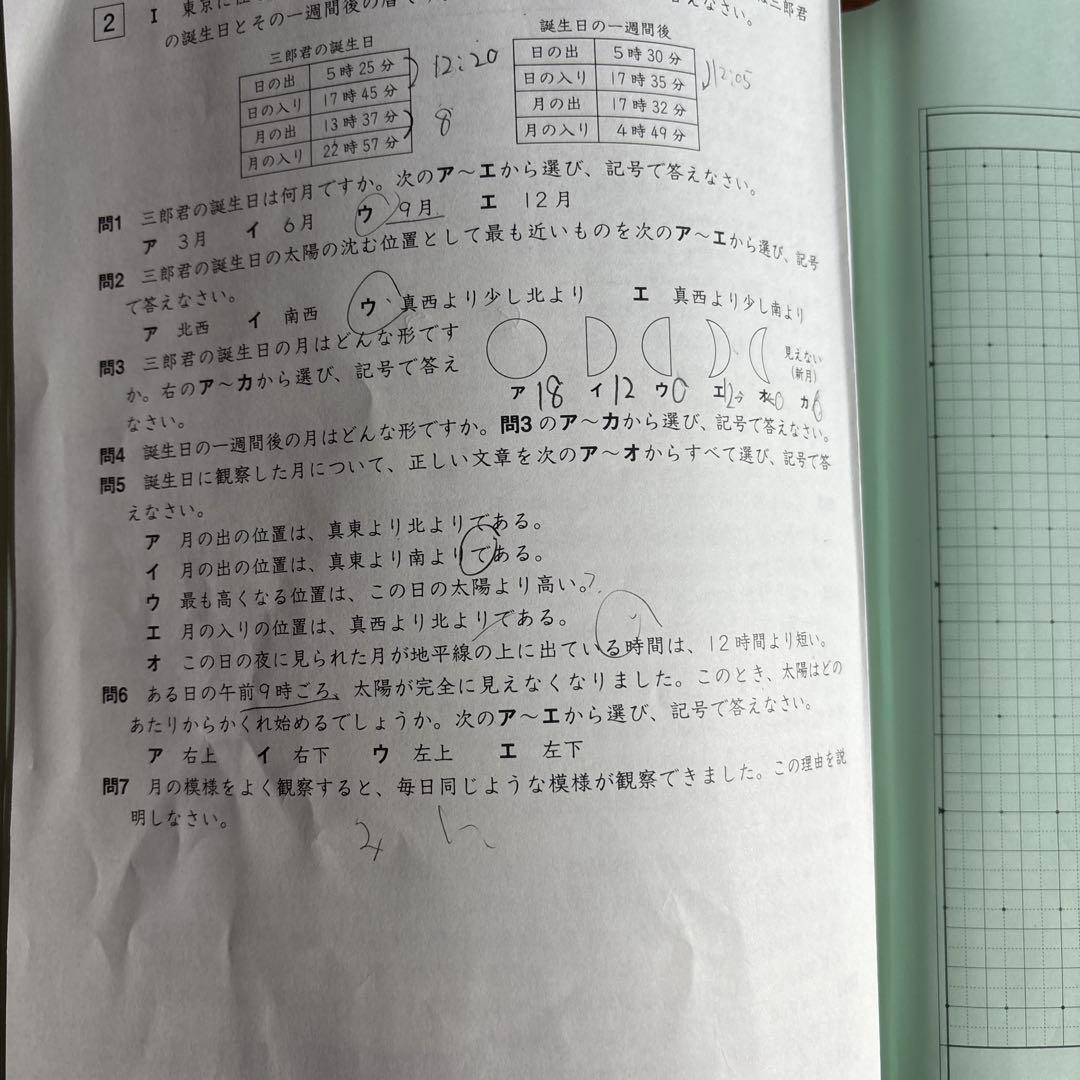 2 I 東京に
の誕生日とその一週間後の暦 えなさい。 三郎君
三郎君の誕生日
日の出 5時25分
日の入り 17時45分
月の出 13時37分
月の入り 22時57分
12:20
8
誕生日の一週間後
日の出 5時30分
日の入り 17時35分
月の出 17時32分
月の入り 4時49分
12:05
問1 三郎君の誕生日は何月ですか。次のア～エから選び、記号で答えなさい。
ア 3月 イ 6月 ウ 9月 エ 12月
問2 三郎君の誕生日の太陽の沈む位置として最も近いものを次のア～エから選び、記号
で答えなさい。
ア 北西 イ 南西 ウ 真西より少し北より エ 真西より少し南より
問3 三郎君の誕生日の月はどんな形です
か。右のア～カから選び、記号で答え
なさい。
見えない
(新月)
ア 18 イ 12 ウ 0 エ オ カ 6
問4 誕生日の一週間後の月はどんな形ですか。問3のア～カから選び、記号で答えなさい。
問5 誕生日に観察した月について、正しい文章を次のア～オからすべて選び、記号で答
えなさい。
ア 月の出の位置は、真東より北よりである。
イ 月の出の位置は、真東より南よりである。
ウ 最も高くなる位置は、この日の太陽より高い。?
エ 月の入りの位置は、真西より北よりである。
オ この日の夜に見られた月が地平線の上に出ている時間は、12時間より短い。
問6 ある日の午前9時ごろ、太陽が完全に見えなくなりました。このとき、太陽はどの
あたりからかくれ始めるでしょうか。次のア～エから選び、記号で答えなさい。
ア 右上 イ 右下 ウ 左上 エ 左下
問7 月の模様をよく観察すると、毎日同じような模様が観察できました。この理由を説
明しなさい。